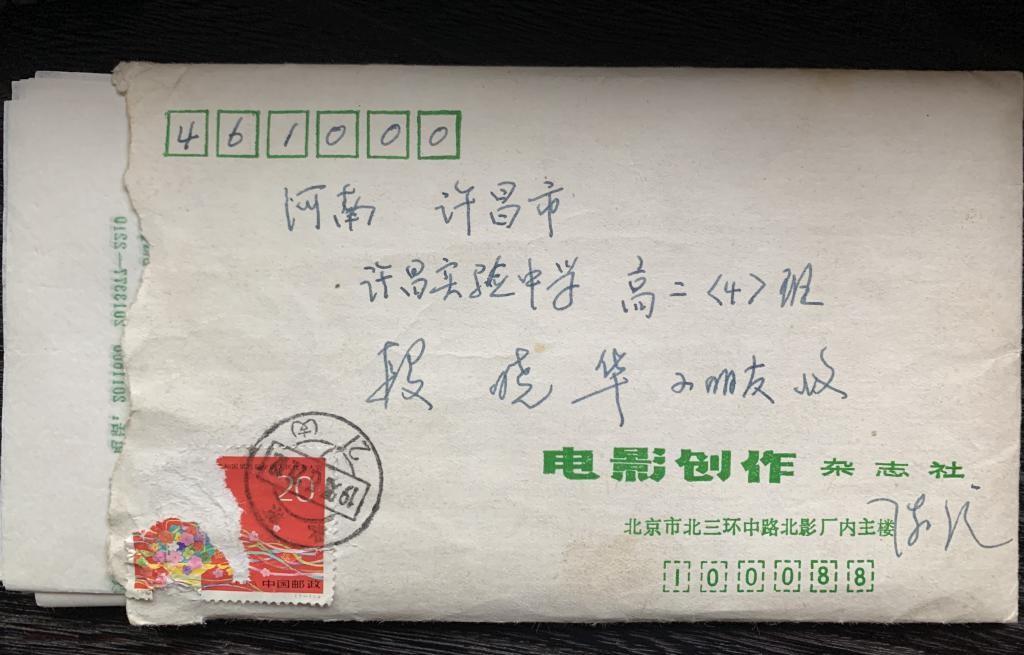 461000
河南 许昌市
许昌实验中学 高二〈4〉班
段晓华 小朋友收
电影创作 杂志社
北京市北三环中路北影厂内主楼
100088
20
中国邮政
电话：2011006 2013377—2210